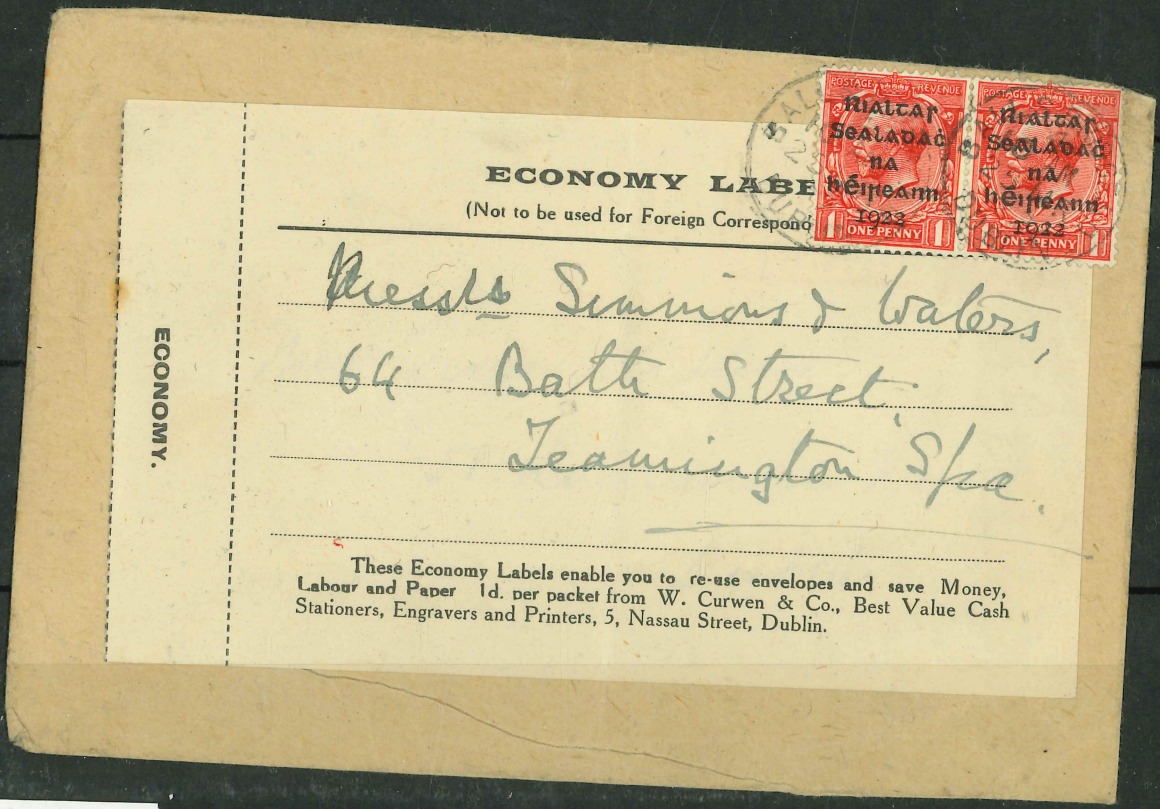 POSTAGE REVENUE
Rialtas
Sealadaċ
na
hÉireann
1922
1 ONE PENNY 1
POSTAGE REVENUE
Rialtas
Sealadaċ
na
hÉireann
1922
1 ONE PENNY 1
ECONOMY LABE
(Not to be used for Foreign Correspond
Messrs Simmons & Waters,
64 Bath Street,
Leamington Spa.
ECONOMY.
These Economy Labels enable you to re-use envelopes and save Money,
Labour and Paper 1d. per packet from W. Curwen & Co., Best Value Cash
Stationers, Engravers and Printers, 5, Nassau Street, Dublin.